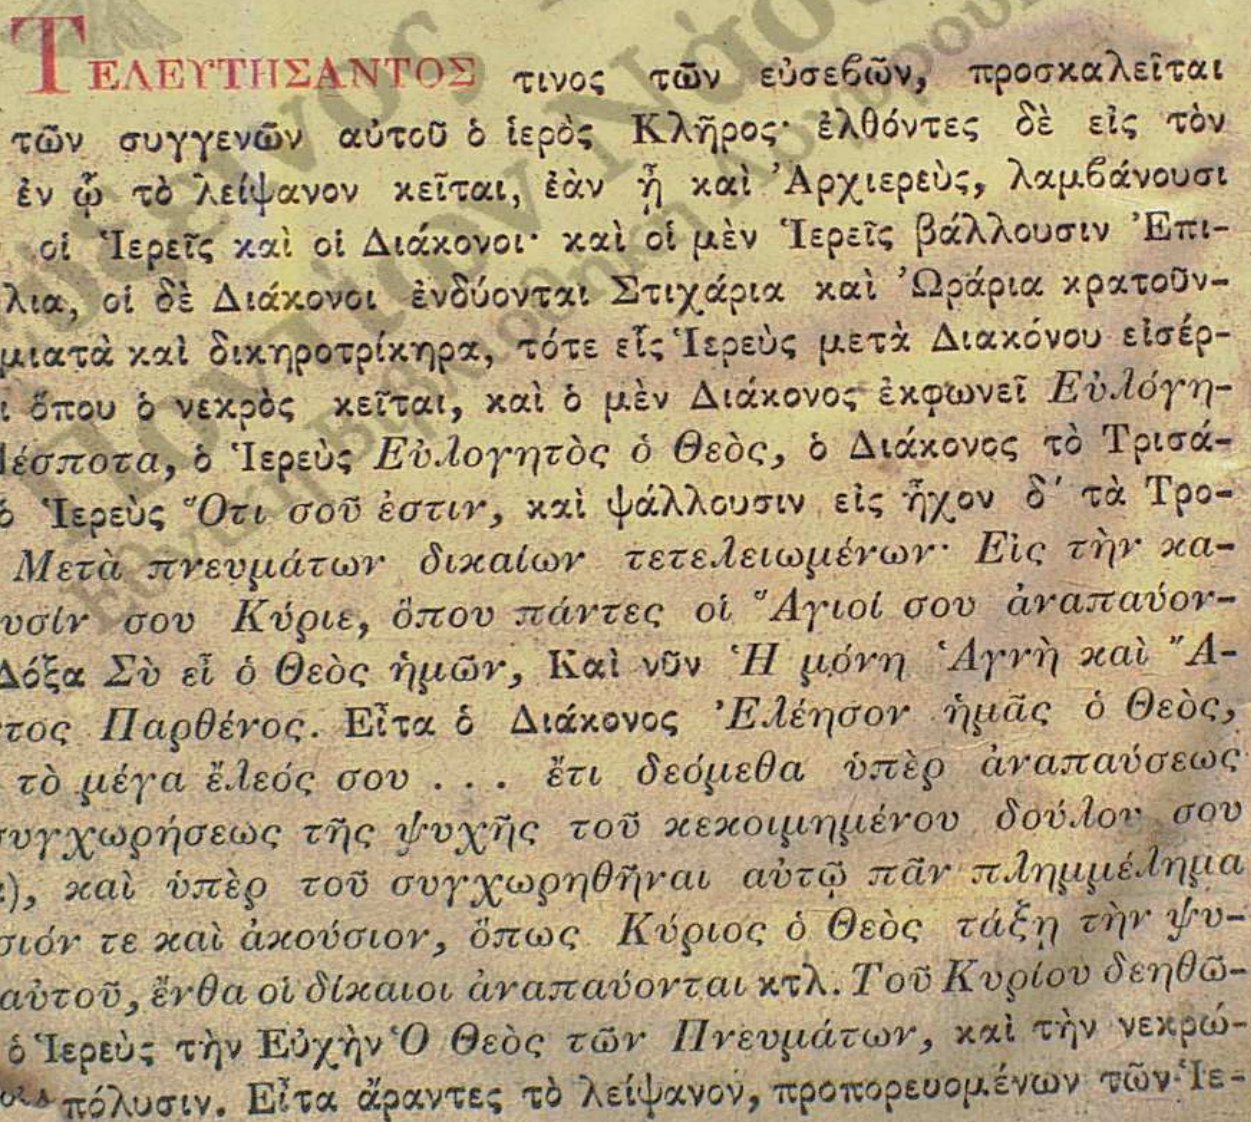 ΤΕΛΕΥΤΗΣΑΝΤΟΣ τινος τῶν εὐσεβῶν, προσκαλεῖται
τῶν συγγενῶν αὐτοῦ ὁ ἱερὸς Κλῆρος· ἐλθόντες δὲ εἰς τὸν
ἐν ᾧ τὸ λείψανον κεῖται, ἐὰν ᾖ καὶ Ἀρχιερεὺς, λαμβάνουσι
οἱ Ἱερεῖς καὶ οἱ Διάκονοι· καὶ οἱ μὲν Ἱερεῖς βάλλουσιν Ἐπι-
λια, οἱ δὲ Διάκονοι ἐνδύονται Στιχάρια καὶ Ὠράρια κρατοῦν-
μιατὰ καὶ δικηροτρίκηρα, τότε εἷς Ἱερεὺς μετὰ Διακόνου εἰσέρ-
ι ὅπου ὁ νεκρὸς κεῖται, καὶ ὁ μὲν Διάκονος ἐκφωνεῖ Εὐλόγη-
έσποτα, ὁ Ἱερεὺς Εὐλογητὸς ὁ Θεὸς, ὁ Διάκονος τὸ Τρισά-
ὁ Ἱερεὺς Ὅτι σοῦ ἐστιν, καὶ ψάλλουσιν εἰς ἦχον δ΄ τὰ Τρο-
Μετὰ πνευμάτων δικαίων τετελειωμένων· Εἰς τὴν κα-
υσίν σου Κύριε, ὅπου πάντες οἱ Ἅγιοί σου ἀναπαύον-
Δόξα Σὺ εἶ ὁ Θεὸς ἡμῶν, Καὶ νῦν Ἡ μόνη Ἁγνὴ καὶ Ἄ-
τος Παρθένος. Εἶτα ὁ Διάκονος Ἐλέησον ἡμᾶς ὁ Θεὸς,
τὸ μέγα ἔλεός σου . . . ἔτι δεόμεθα ὑπὲρ ἀναπαύσεως
συγχωρήσεως τῆς ψυχῆς τοῦ κεκοιμημένου δούλου σου
), καὶ ὑπὲρ τοῦ συγχωρηθῆναι αὐτῷ πᾶν πλημμέλημα
σιόν τε καὶ ἀκούσιον, ὅπως Κύριος ὁ Θεὸς τάξῃ τὴν ψυ-
αὐτοῦ, ἔνθα οἱ δίκαιοι ἀναπαύονται κτλ. Τοῦ Κυρίου δεηθῶ-
ὁ Ἱερεὺς τὴν Εὐχὴν Ὁ Θεὸς τῶν Πνευμάτων, καὶ τὴν νεκρώ-
πόλυσιν. Εἶτα ἄραντες τὸ λείψανον, προπορευομένων τῶν Ἱε-